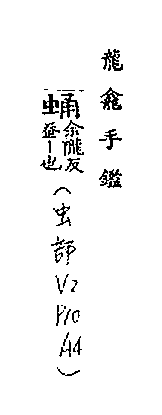 龍龕手鑑
蛹余隴反
蚕一也
(虫部V2
P10
A4)